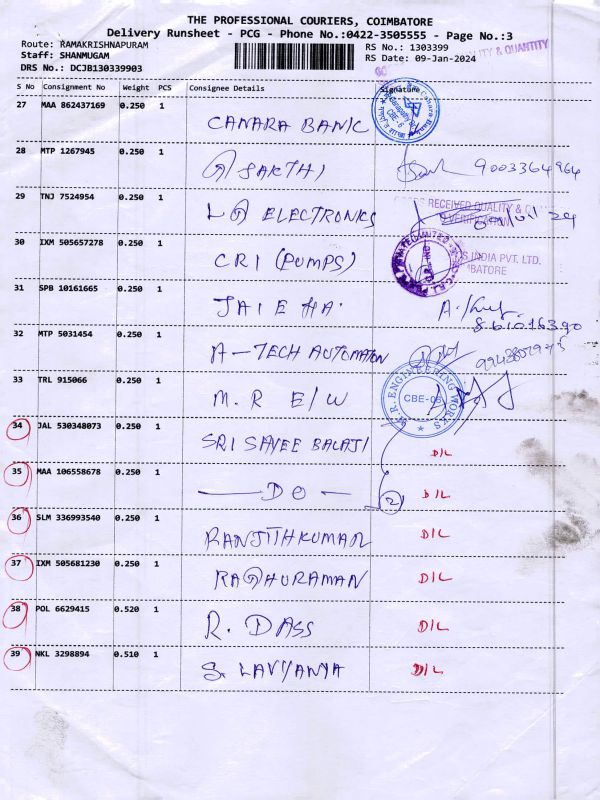 THE PROFESSIONAL COURIERS, COIMBATORE
Delivery Runsheet - PCG - Phone No.:0422-3505555 - Page No.:3
Route: RAMAKRISHNAPURAM
RS No.: 1303399
Staff: SHANMUGAM
RS Date: 09-Jan-2024
DRS No.: DCJB130339903
LITY & QUANTITY
S No Consignment No Weight PCS Consignee Details Signature
27 MAA 862437169 0.250 1 CANARA BANK
28 MTP 1267945 0.250 1 G SAKTHI 9003364964
29 TNJ 7524954 0.250 1 LG ELECTRONICS
RECEIVED QUALITY &
30 IXM 505657278 0.250 1 CRI (PUMPS)
INDIA PVT. LTD.
BATORE
31 SPB 10161665 0.250 1 JAIE HA.
32 MTP 5031454 0.250 1 A-TECH AUTOMATION
33 TRL 915066 0.250 1 M.R E/W
R. ENGINEERING WORKS
CBE-06
34 JAL 530348073 0.250 1 SRI SAYEE BALAJI D/L
35 MAA 106558678 0.250 1 — DO — 2 D/L
36 SLM 336993540 0.250 1 RANJITHKUMAR D/L
37 IXM 505681230 0.250 1 RAGHURAMAN D/L
38 POL 6629415 0.520 1 R. DASS D/L
39 NKL 3298894 0.510 1 S. LAVYANYA D/L